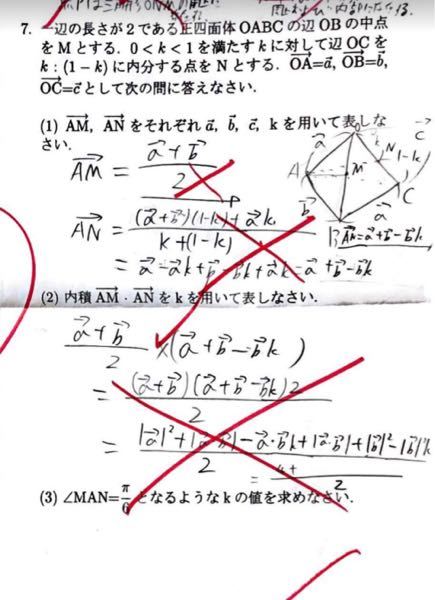 7. 一辺の長さが2である正四面体OABCの辺OBの中点
をMとする. 0 < k < 1 を満たすkに対して辺OCを
k : (1 − k) に内分する点をNとする. \overrightarrow{OA}=\vec{a}, \overrightarrow{OB}=\vec{b},
\overrightarrow{OC}=\vec{c}として次の間に答えなさい.
(1) \overrightarrow{AM}, \overrightarrow{AN}をそれぞれ\vec{a}, \vec{b}, \vec{c}, kを用いて表しな
さい.
\overrightarrow{AM} = \frac{\vec{a}+\vec{b}}{2}
\overrightarrow{AN} = \frac{(\vec{a}+\vec{b})(1-k)+\vec{a}k}{k+(1-k)}
= \vec{a}-\vec{a}k+\vec{b}-\vec{b}k+\vec{a}k=\vec{a}+\vec{b}-\vec{b}k
\vec{a}
\vec{c}
N
1-k
A
M
C
\vec{b}
\vec{a}
B
\overrightarrow{AN}=\vec{a}+\vec{b}-\vec{b}k
(2) 内積\overrightarrow{AM}・\overrightarrow{AN}をkを用いて表しなさい.
\frac{\vec{a}+\vec{b}}{2}×(\vec{a}+\vec{b}-\vec{b}k)
= \frac{(\vec{a}+\vec{b})(\vec{a}+\vec{b}-\vec{b}k)2}{2}
(3) ∠MAN=\frac{π}{6}となるようなkの値を求めなさい.